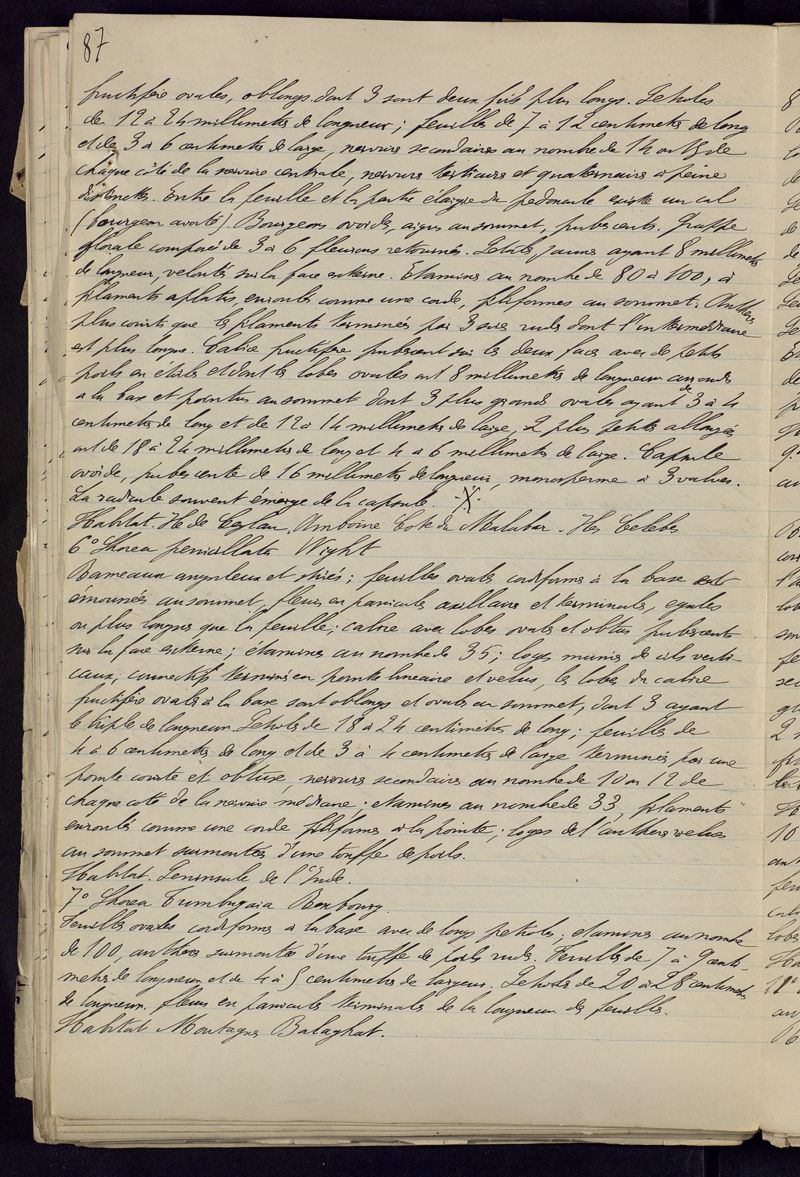 87
fructifère ovales, oblongs dont 3 sont deux fois plus longs. Petioles
de 12 à 24 millimetres de longueur ; feuilles de 7 à 12 centimetres de long
et de 3 à 6 centimetres de large, nervures secondaires au nombre de 14 ou 15 de
chaque côté de la nervure centrale, nervures tertiaires et quaternaires à peine
distinctes. Entre la feuille et la partie élargie du pedoncule existe un cal
(bourgeon avorté). Bourgeons ovoides, aigus au sommet, pubescents. Grappe
florale composé de 3 à 6 fleurons retournés. Petales jaunes ayant 8 millimetres
de longueur, veloutés sur la face externe. Etamines au nombre de 80 à 100, à
filaments aplatis, enroulés comme une corde, filiformes au sommet. Anthères
plus courts que les filaments terminés par 3 soies rudes dont l'intermédiaire
est plus longue. Calice fructifère pubescent sur les deux faces avec de petits
poils en étoiles et dont les lobes ovales ont 8 millimetres de longueur arrondis
a la base et pointus au sommet dont 3 plus grands ovales ayant de 3 à 4
centimetres de long et de 12 à 14 millimetres de large, 2 plus petits allongés
ont de 18 à 24 millimetres de long et 4 à 6 millimetres de large. Capsule
ovoide, pubescente de 16 millimetres de longueur, monosperme à 3 valves.
La radicule souvent émerge de la capsule. -X-
Habitat. Ile de Ceylan, Amboine Cote du Malabar. Iles Celebes
6° Shorea penicillata Wight
Rameaux anguleux et striés ; feuilles ovales cordiformes à la base
émoussées au sommet, fleurs en panicules axillaires et terminales, egales
ou plus longues que la feuille ; calice avec lobes ovales et obtus pubescents
sur la face externe ; étamines au nombre de 35 ; loges munies de cils verti-
caux, connectif terminé en pointe lineaire et velue, les lobes du calice
fructifère ovales à la base sont oblongs et ovales au sommet, dont 3 ayant
le triple de longueur. Petioles de 18 à 24 centimètres de long ; feuilles de
4 à 6 centimetres de long et de 3 à 4 centimetres de large terminées par une
pointe courte et obtuse, nervures secondaires au nombre de 10 ou 12 de
chaque coté de la nervure médiane ; etamines au nombre de 33, filaments
enroulés comme une corde filiformes à la pointe ; loges de l'anthère velues
au sommet surmontées d'une touffe de poils.
Habitat. Peninsule de l'Inde.
7° Shorea Tumbugaia Roxbourg.
Feuilles ovales cordiformes à la base avec de longs petioles ; etamines au nombre
de 100, anthères surmontées d'une touffe de poils rudes. Feuilles de 7 à 9 centi-
metres de longueur et de 4 à 5 centimetres de largeur. Petioles de 20 à 28 centimetres
de longueur. fleurs en panicules terminales de la longueur des feuilles.
Habitat Montagnes Balaghat.